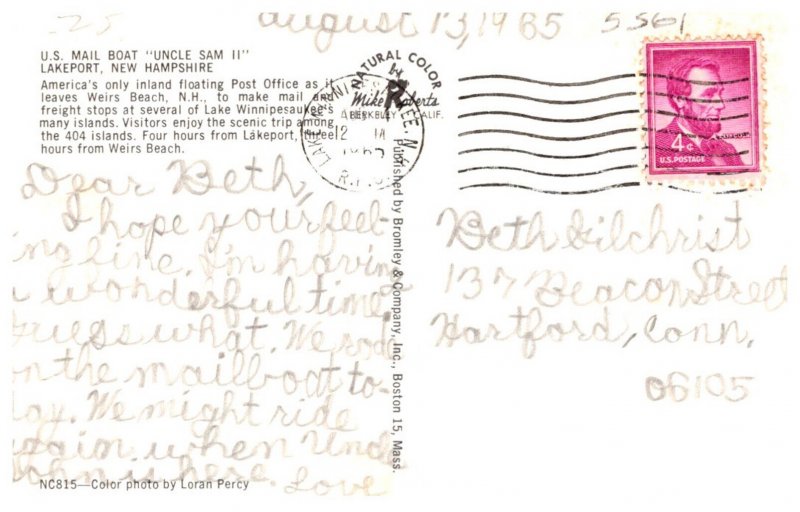 25
August 13, 1965
5561
U.S. MAIL BOAT "UNCLE SAM II"
LAKEPORT, NEW HAMPSHIRE
America's only inland floating Post Office as it
leaves Weirs Beach, N.H., to make mail and
freight stops at several of Lake Winnipesaukee's
many islands. Visitors enjoy the scenic trip among
the 404 islands. Four hours from Lakeport, three
hours from Weirs Beach.
NATURAL COLOR
Mike Roberts
BERKELEY CALIF.
12
1965
4¢
LINCOLN
U.S. POSTAGE
Dear Beth,
I hope your feel-
ing fine. I'm having
a wonderful time
Guess what. We rode
on the mailboat to-
day. We might ride
again when
John is here. Love
NC815—Color photo by Loran Percy
Published by Bromley & Company, Inc., Boston 15, Mass.
Beth Gilchrist
137 Beacon Street
Hartford, Conn.
06105